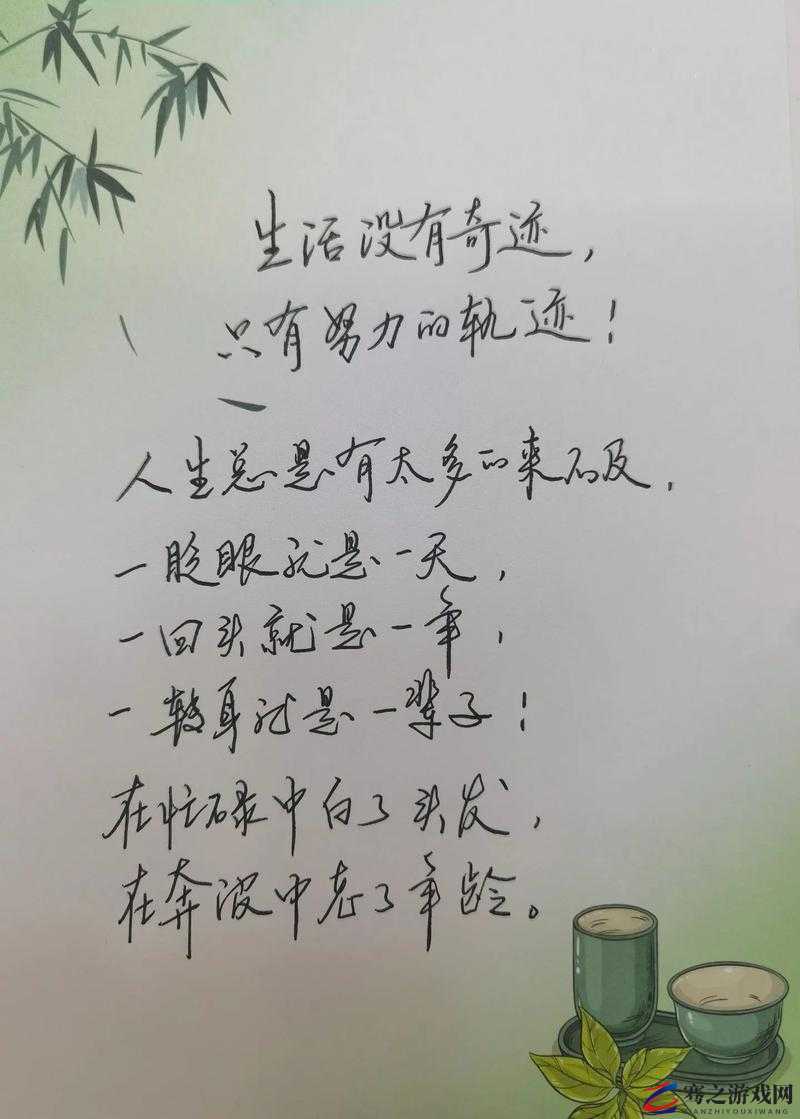 生活没有奇迹，
只有努力的轨迹！
人生总是有太多的来不及，
一眨眼就是一天，
一回头就是一年，
一转身就是一辈子！
在忙碌中白了头发，
在奔波中老了年龄。
骞之游戏网
QIANZHIYOUXIWANG